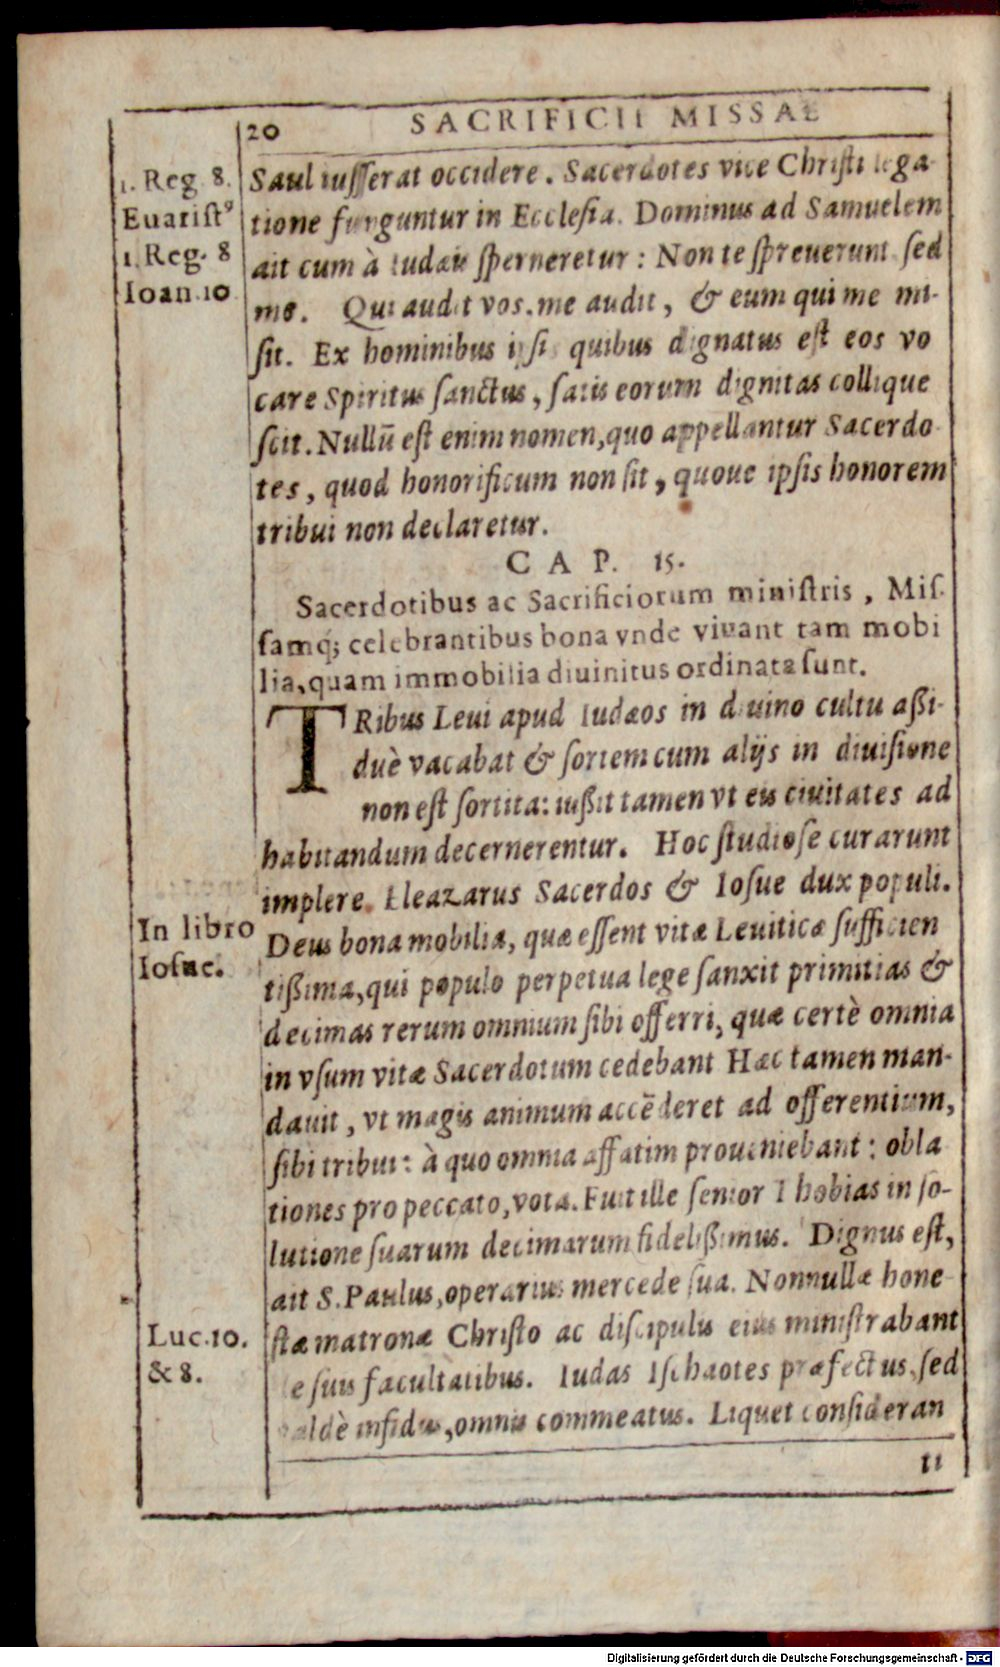 20 SACRIFICII MISSAE
1. Reg. 8.
Euarist⁹
1. Reg. 8
Ioan. 10
Saul iusserat occidere. Sacerdotes vice Christi lega-
tione funguntur in Ecclesia. Dominus ad Samuelem
ait cum à Iudæis sperneretur: Non te spreuerunt sed
me. Qui audit vos, me audit, & eum qui me mi-
sit. Ex hominibus ipsis quibus dignatus est eos vo
care Spiritus sanctus, satis eorum dignitas collique
scit. Nullū est enim nomen, quo appellantur Sacerdo-
tes, quod honorificum non sit, quoue ipsis honorem
tribui non declaretur.
CAP. 15.
Sacerdotibus ac Sacrificiorum ministris, Mis-
samq; celebrantibus bona vnde viuant tam mobi
lia, quam immobilia diuinitus ordinata sunt.
TRibus Leui apud Iudæos in diuino cultu aßi-
duè vacabat & sortem cum alijs in diuisione
non est sortita: iußit tamen vt eis ciuitates ad
habitandum decernerentur. Hoc studiose curarunt
implere Eleazarus Sacerdos & Iosue dux populi.
In libro
Iosue.
Deus bona mobilia, quæ essent vitæ Leuiticæ sufficien
tißima, qui populo perpetua lege sanxit primitias &
decimas rerum omnium sibi offerri, quæ certè omnia
in vsum vitæ Sacerdotum cedebant Hæc tamen man-
dauit, vt magis animum accēderet ad offerentium,
sibi tribui: à quo omnia affatim proueniebant: obla
tiones pro peccato, vota. Fuit ille senior Thobias in so-
lutione suarum decimarum fidelißimus. Dignus est,
ait S. Paulus, operarius mercede sua. Nonnullæ hone-
Luc. 10.
& 8.
stæ matronæ Christo ac discipulis eius ministrabant
de suis facultatibus. Iudas Ischaotes præfectus, sed
valdè infidus, omnis commeatus. Liquet consideran
ti
Digitalisierung gefördert durch die Deutsche Forschungsgemeinschaft - DFG